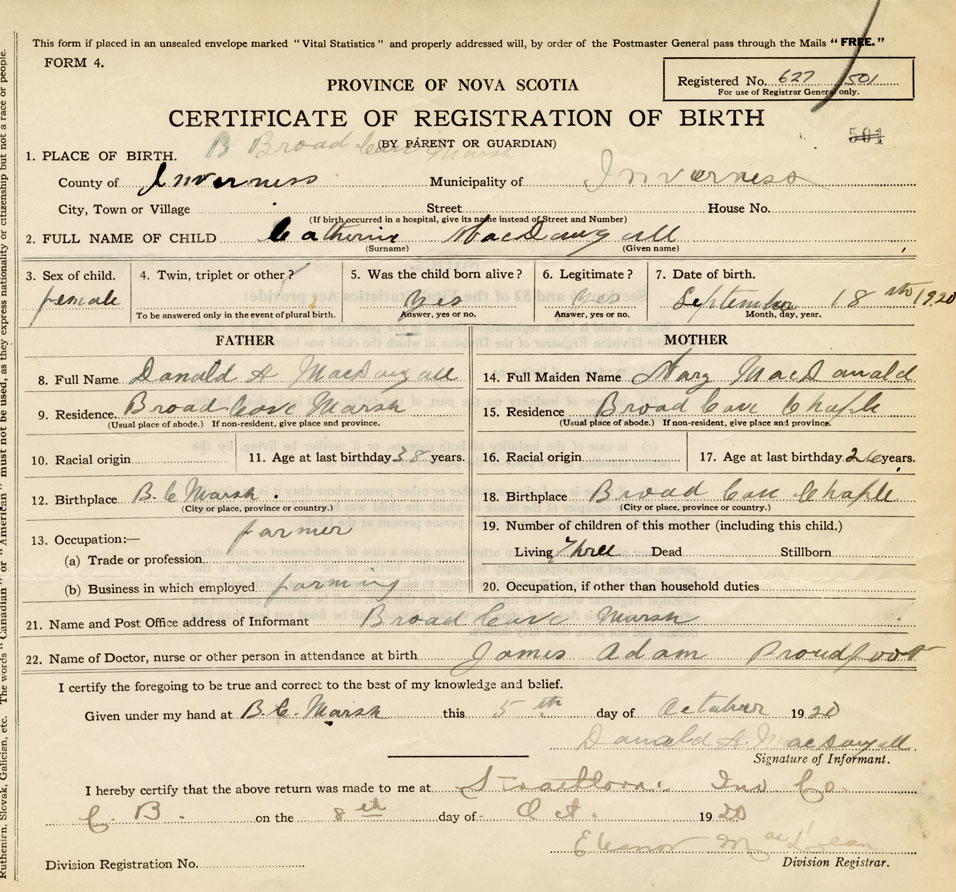 This form if placed in an unsealed envelope marked "Vital Statistics" and properly addressed will, by order of the Postmaster General pass through the Mails "FREE."
FORM 4.
Registered No. 627 501
For use of Registrar General only.
PROVINCE OF NOVA SCOTIA
CERTIFICATE OF REGISTRATION OF BIRTH
501
(BY PARENT OR GUARDIAN)
B Broad Cove Marsh
1. PLACE OF BIRTH.
County of Inverness Municipality of Inverness
City, Town or Village Street House No.
(If birth occurred in a hospital, give its name instead of Street and Number)
2. FULL NAME OF CHILD Catherine MacDougall
(Surname) (Given name)
3. Sex of child. 4. Twin, triplet or other? 5. Was the child born alive? 6. Legitimate? 7. Date of birth.
female Yes Yes September 18th 1920
To be answered only in the event of plural birth. Answer, yes or no. Answer, yes or no. Month, day, year.
FATHER MOTHER
8. Full Name Donald A MacDougall 14. Full Maiden Name Mary MacDonald
9. Residence. Broad Cove Marsh 15. Residence Broad Cove Chaple
(Usual place of abode.) If non-resident, give place and province. (Usual place of abode.) If non-resident, give place and province.
10. Racial origin 11. Age at last birthday 38 years. 16. Racial origin 17. Age at last birthday 26 years.
12. Birthplace B. C Marsh. 18. Birthplace Broad Cove Chaple
(City or place, province or country.) (City or place, province or country.)
13. Occupation:— farmer 19. Number of children of this mother (including this child.)
(a) Trade or profession Living Three Dead Stillborn
(b) Business in which employed farming 20. Occupation, if other than household duties
21. Name and Post Office address of Informant Broad Cove Marsh
22. Name of Doctor, nurse or other person in attendance at birth James Adam Proudfoot
I certify the foregoing to be true and correct to the best of my knowledge and belief.
Given under my hand at B. C. Marsh this 5th day of October 1920
Donald A. MacDougall
Signature of Informant.
I hereby certify that the above return was made to me at Strathlorne Inv Co.
C. B. on the 8th day of Oct. 1920
Eleanor MacLean
Division Registration No. Division Registrar.
Ruthenien, Slovak, Galician, etc. The words "Canadian" or "American" must not be used, as they express nationality or citizenship but not a race or people.